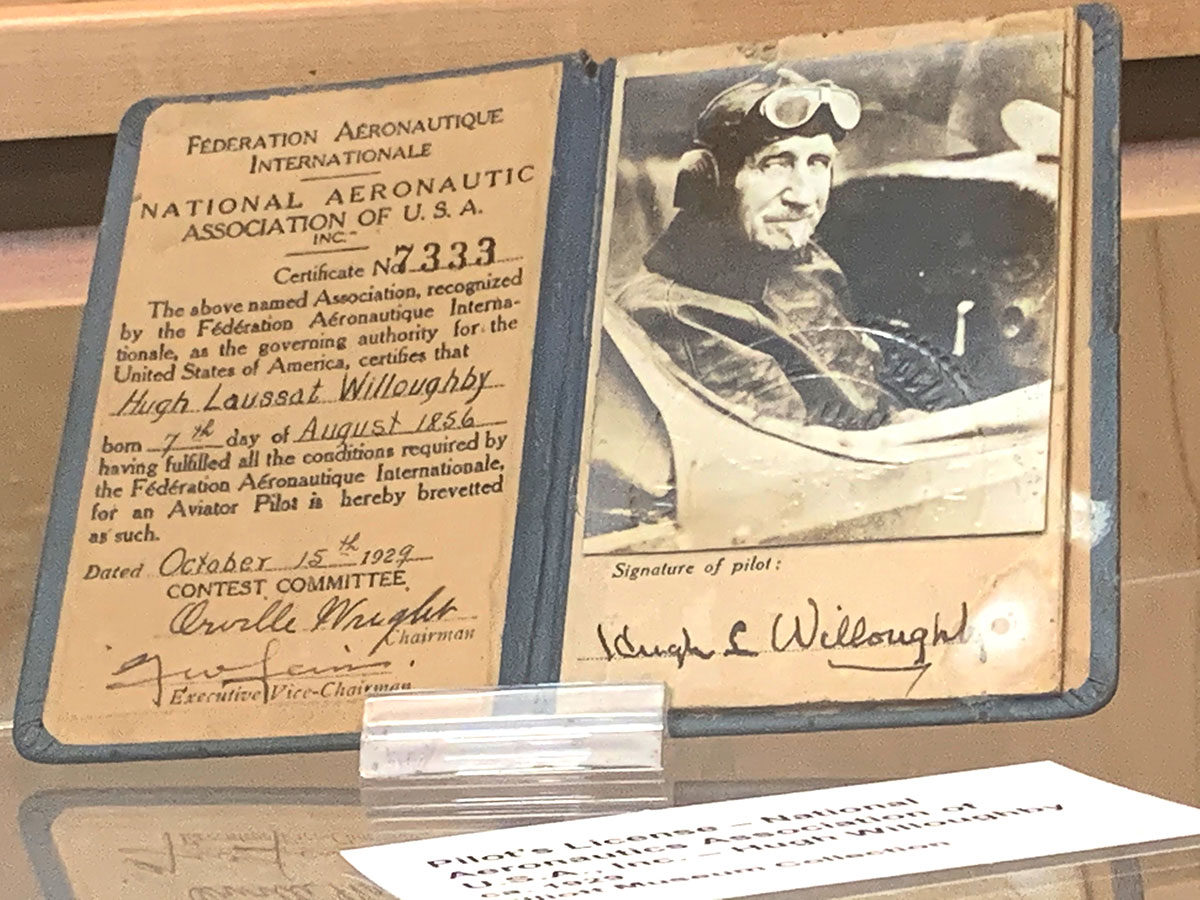 FÉDERATION AÉRONAUTIQUE
INTERNATIONALE
NATIONAL AERONAUTIC
ASSOCIATION OF U. S. A.
INC.
Certificate No 7333
The above named Association, recognized
by the Fédération Aéronautique Interna-
tionale, as the governing authority for the
United States of America, certifies that
Hugh Laussat Willoughby
born 7th day of August 1856
having fulfilled all the conditions required by
the Fédération Aéronautique Internationale,
for an Aviator Pilot is hereby brevetted
as such.
Dated October 15th 1929
CONTEST COMMITTEE,
Orville Wright
Chairman
Executive Vice-Chairman
Signature of pilot:
Hugh L Willoughby
Pilot's License – National
Aeronautics Association of
U.S.A., Inc. – Hugh Willoughby
ca. 1929
Elliott Museum Collection